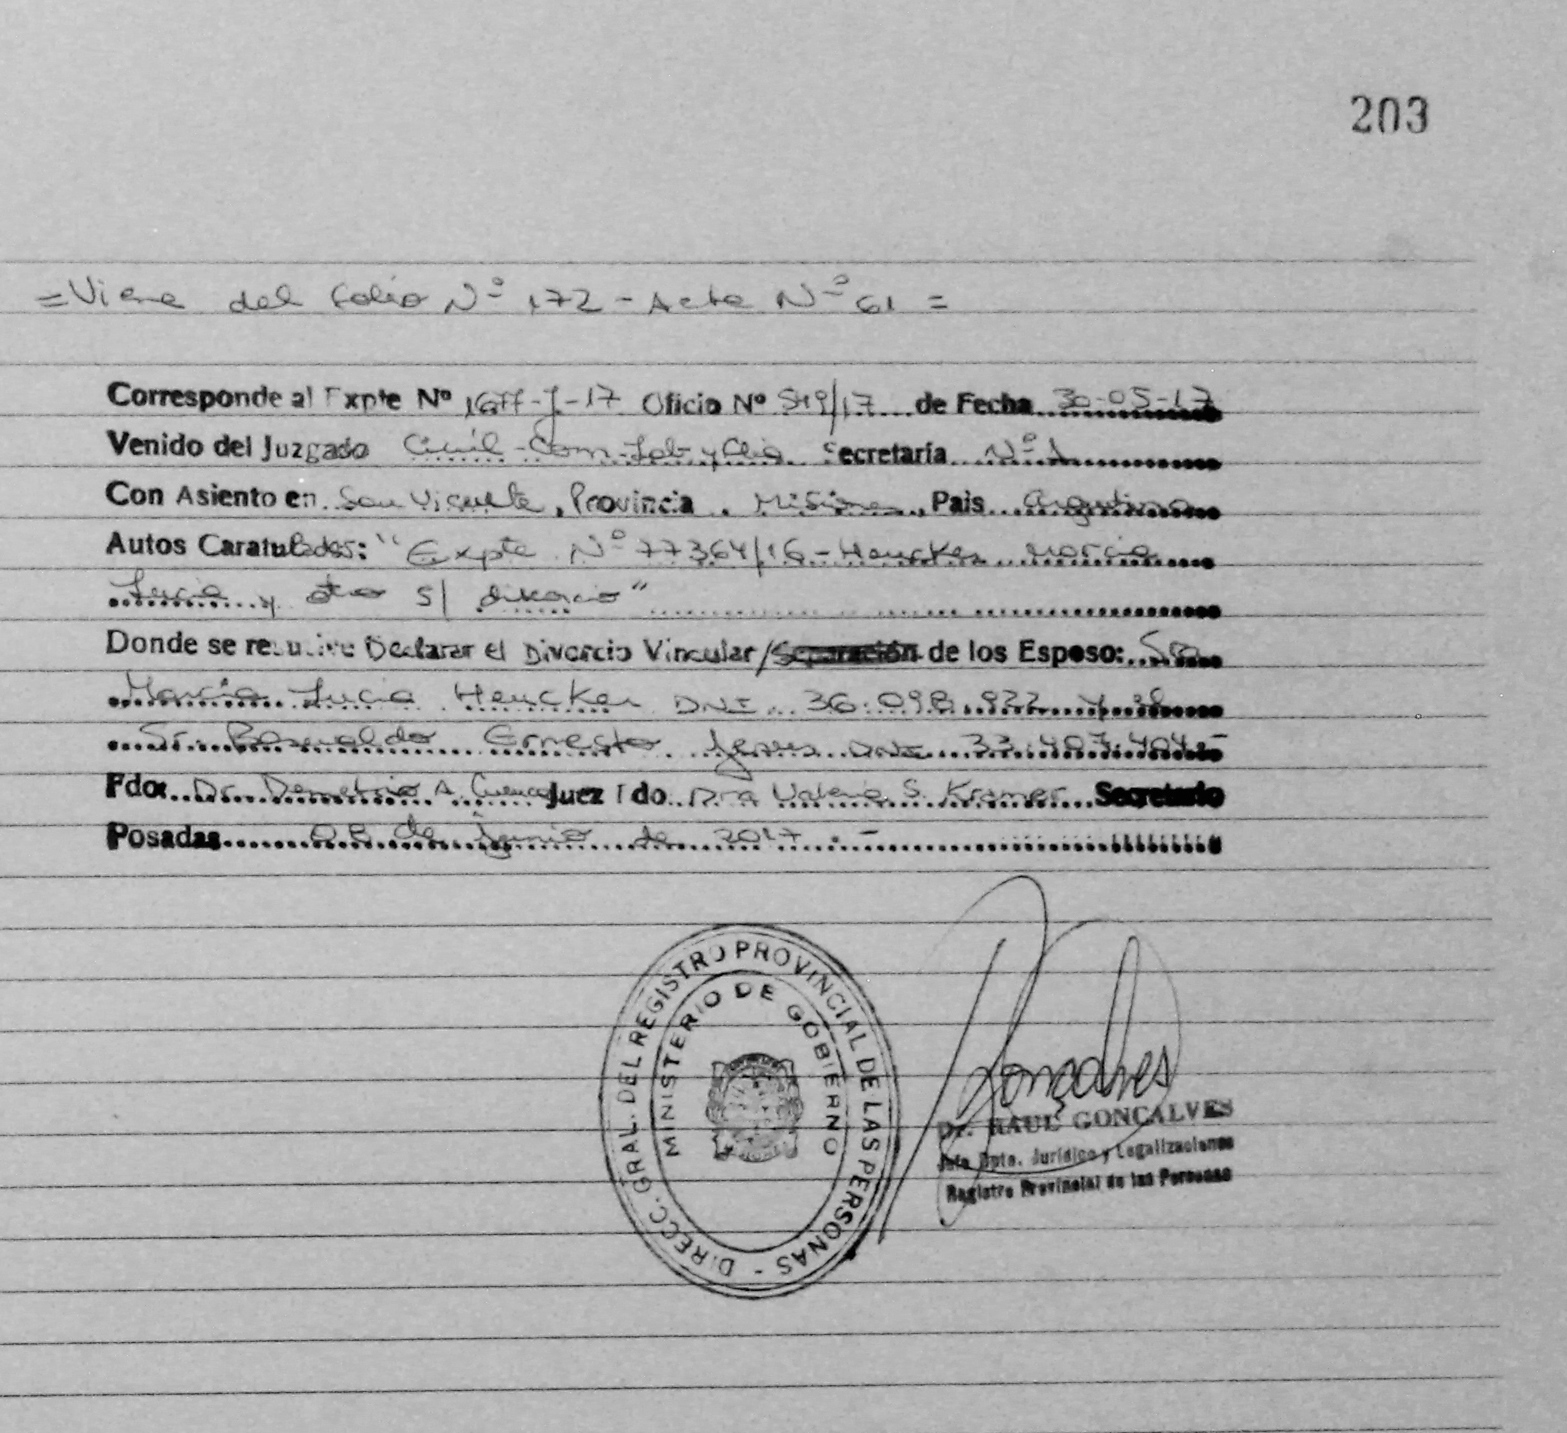 203
=Viene del folio Nº 172 - Acta Nº 61 =
Corresponde al Expte Nº 1677-J-17 Oficio Nº 519/17 de Fecha 30-05-17
Venido del Juzgado Civil-Com-Lab y Flia Secretaría Nº 1
Con Asiento en San Vicente, Provincia, Misiones, Pais Argentina
Autos Caratulados: "Expte Nº 77364/16 - Heucker Marcia
Lucia y otro s/ divorcio"
Donde se resuelve Declarar el Divorcio Vincular/Separación de los Esposo: Sra
Marcia Lucia Heucker DNI 36.098.922 y el
Sr. Ernesto Jesus DNI 33.407.404.-
Fdo: Dr. Demetrio A. Cuenca Juez Fdo Dra Valeria S. Kramer Secretario
Posadas 08 de Junio de 2017.-
DIRECC. GRAL. DEL REGISTRO PROVINCIAL DE LAS PERSONAS -
MINISTERIO DE GOBIERNO
Gonçalves
Dr. RAUL GONCALVES
Jefe Dpto. Jurídico y Legalizaciones
Registro Provincial de las Personas